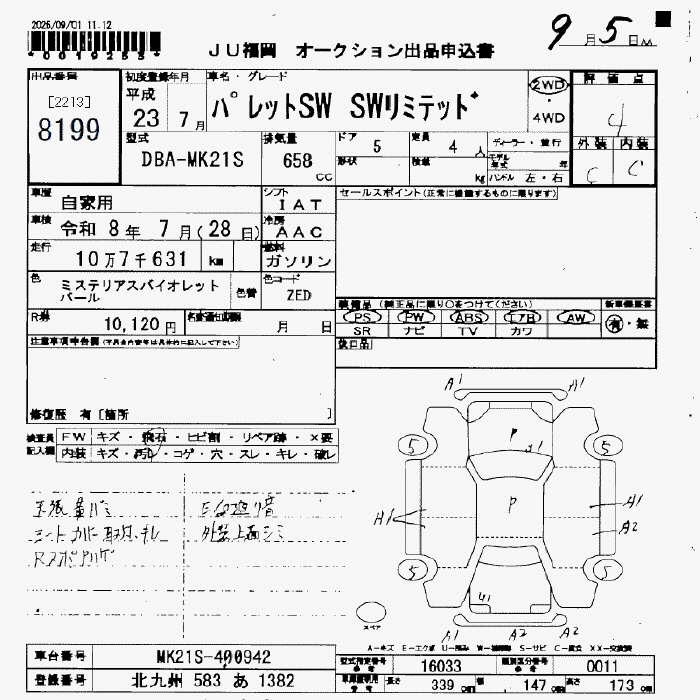 2025/09/01 11.12
*0019253*
JU福岡 オークション出品申込書
9月5日
出品番号
[2213]
8199
初度登録年月
平成
23 7月
車名・グレード
パレットSW SWリミテッド
2WD
・
4WD
評価点
4
外装 内装
C C
型式
DBA-MK21S
排気量
658
CC
ドア
5
定員
4
人
形状
積載
kg
ディーラー・並行
モデル年式 年
ハンドル 左・右
車歴
自家用
シフト
IAT
セールスポイント(正常に機能するものに限ります)
車検
令和 8年 7月(28日)
冷房
AAC
走行
10万7千631 km
燃料
ガソリン
色
ミステリアスバイオレット
パール
色替
色コード
ZED
装備品(純正品に限り○をつけてください)
新車保証書
PS PW ABS エアB AW
有・無
SR ナビ TV カワ
R券
10,120円
名変通知期限
月 日
後日品
注意事項申告欄
修復歴 有[箇所 ]
検査員
記入欄
FW キズ・飛石・ヒビ割・リペア跡・×要
内装 キズ・汚れ・コゲ・穴・スレ・キレ・破レ
A1 A1
P
J1
5 5
P
A1 A1
A2
5 5
U1
A1 A2 A2
スペア
A-キズ E-エクボ
車台番号
MK21S-400942
型式指定番号
16033
類別区分番号
0011
登録番号
北九州 583 あ 1382
長さ
339
幅
147
高さ
173